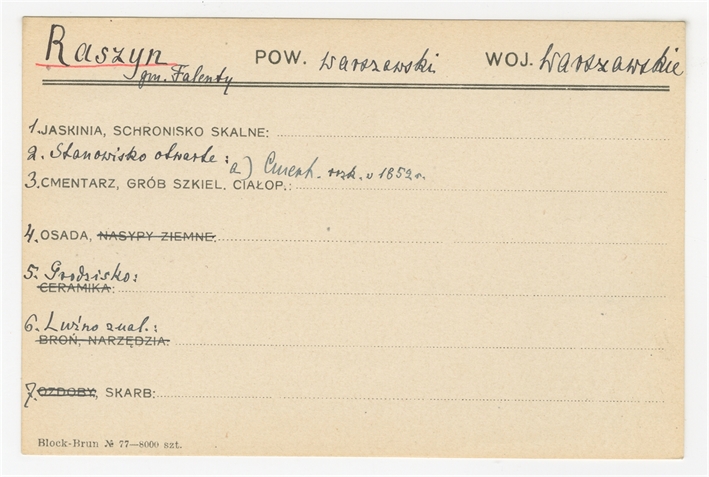 Raszyn POW. warszawski WOJ. Warszawskie
gm. Falenty
1. JASKINIA, SCHRONISKO SKALNE:
2. Stanowisko otwarte: a) Cment. rzk. w 1852 r.
3. CMENTARZ, GRÓB SZKIEL. CIAŁOP.:
4. OSADA, NASYPY ZIEMNE:
5. Grodzisko:
CERAMIKA:
6. Luźno znal.:
BROŃ, NARZĘDZIA:
7. OZDOBY, SKARB:
Block-Brun № 77—8000 szt.